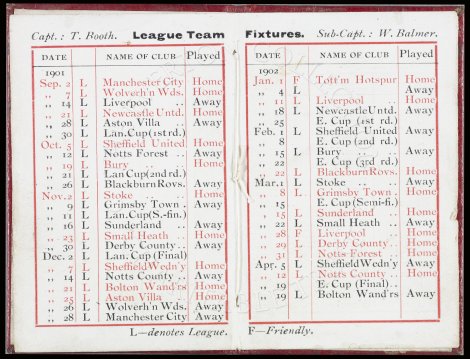 Capt.: T. Booth. League Team
DATE NAME OF CLUB Played
1901
Sep. 2 L Manchester City Home
,, 7 L Wolverh'n Wds. Home
,, 14 L Liverpool .. Away
,, 21 L Newcastle Untd. Home
,, 28 L Aston Villa .. Away
,, 30 Lan. Cup (1st rd.)
Oct. 5 L Sheffield United Home
,, 12 L Notts Forest .. Away
,, 19 L Bury .. .. Home
,, 21 Lan. Cup (2nd rd.)
,, 26 L Blackburn Rovs. Away
Nov. 2 L Stoke .. .. Home
,, 9 L Grimsby Town . Away
,, 11 Lan. Cup (S.-fin.)
,, 16 L Sunderland .. Away
,, 23 L Small Heath .. Home
,, 30 L Derby County .. Away
Dec. 2 L Lan. Cup (Final)
,, 7 L Sheffield Wedn'y Home
,, 14 L Notts County .. Away
,, 21 L Bolton Wand'rs Home
,, 25 L Aston Villa .. Home
,, 26 L Wolverh'n Wds. Away
,, 28 L Manchester City Away
L—denotes League.
Fixtures. Sub-Capt.: W. Balmer.
DATE NAME OF CLUB Played
1902
Jan. 1 F Tott'n Hotspur Home
,, 4 L Away
,, 11 L Liverpool .. Home
,, 18 L Newcastle Untd. Away
,, 25 E. Cup (1st rd.)
Feb. 1 L Sheffield United Away
,, 8 E. Cup (2nd rd.)
,, 15 L Bury .. .. Away
,, 22 E. Cup (3rd rd.)
,, 22 L Blackburn Rovs. Home
Mar. 1 L Stoke .. .. Away
,, 8 L Grimsby Town . Home
,, 15 E. Cup (Semi-fi.)
,, 15 L Sunderland .. Home
,, 22 L Small Heath .. Away
,, 28 F Liverpool .. Home
,, 29 L Derby County .. Home
,, 31 L Notts Forest .. Home
Apr. 5 L Sheffield Wedn'y Away
,, 12 L Notts County .. Home
,, 19 E. Cup (Final) ..
,, 19 L Bolton Wand'rs Away
F—Friendly.